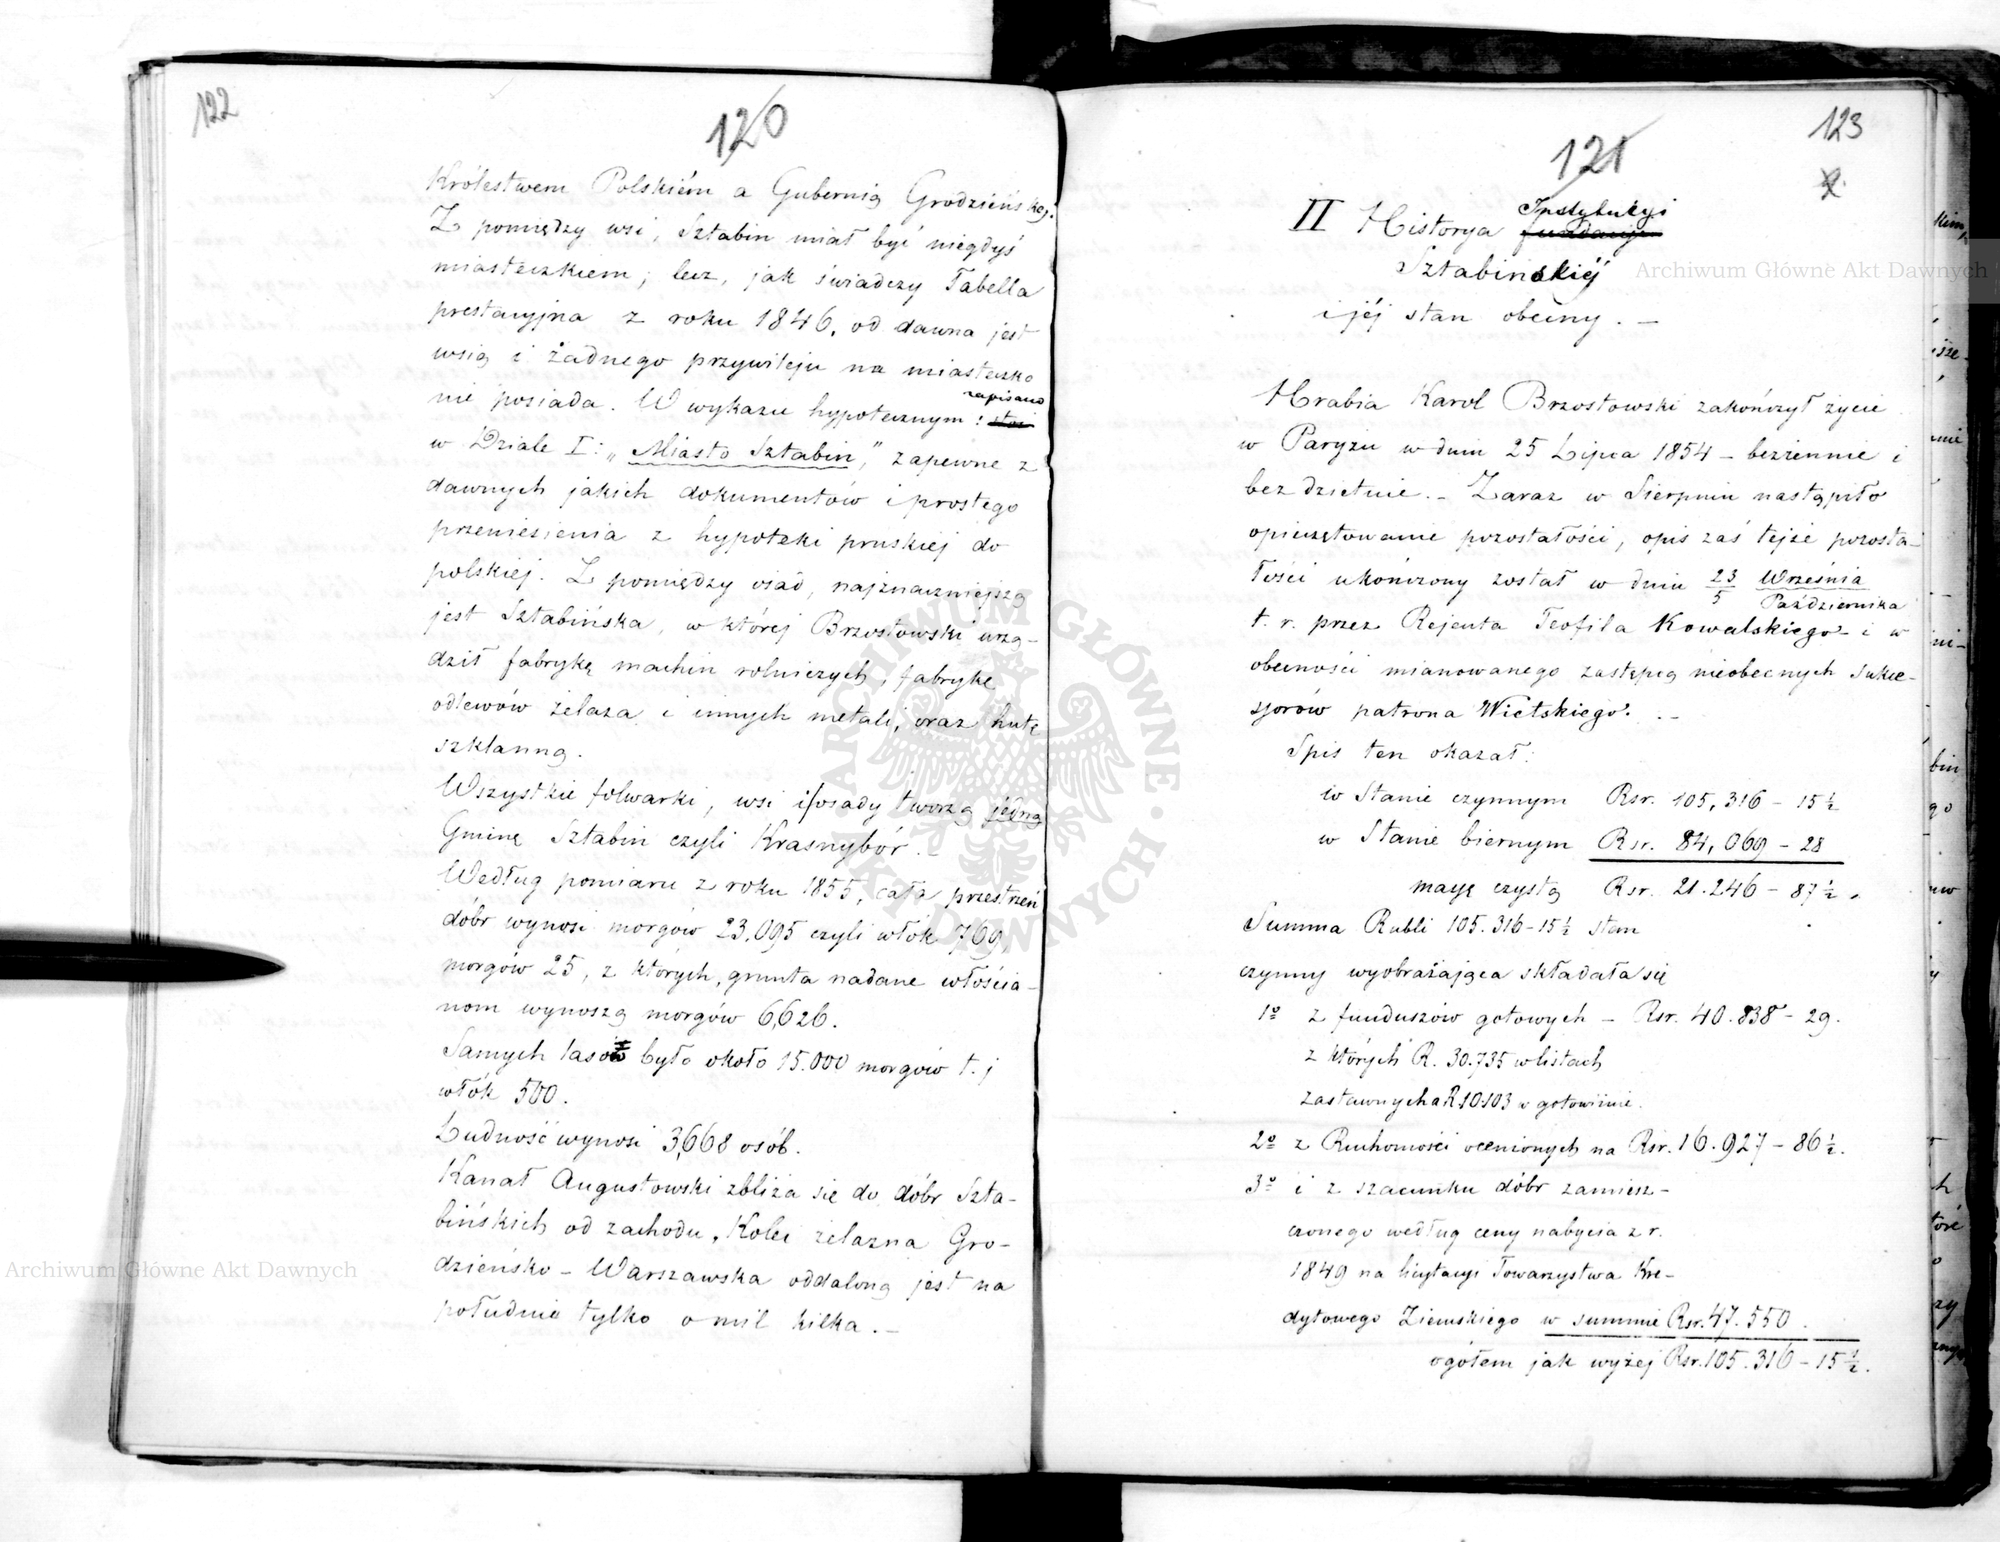 122
120
Królestwem Polskiém a Gubernią Grodzieńską.
Z pomiędzy wsi, Sztabin miał być niegdyś
miasteczkiem; lecz, jak świadczy Tabella
prestacyjna z roku 1846, od dawna jest
wsią i żadnego przywileju na miasteczko
nie posiada. W wykazie hypotecznym: stoi zapisano
w Dziale I: „Miasto Sztabin", zapewne z
dawnych jakich dokumentów i prostego
przeniesienia z hypoteki pruskiej do
polskiej. Z pomiędzy osad, najznaczniejszą
jest Sztabińska, w której Brzostowski urzą-
dził fabrykę machin rolniczych, fabrykę
odlewów żelaza i innych metali, oraz hutę
szklanną.
Wszystkie folwarki, wsi i osady tworzą jedną
Gminę Sztabin czyli Krasnybór. –
Według pomiaru z roku 1855, cała przestrzeń
dóbr wynosi morgów 23,095 czyli włók 769,
morgów 25, z których, grunta nadane włościa-
nom wynoszą morgów 6,626.
Samych lasów było około 15.000 morgów t. j
włók 500.
Ludność wynosi 3,668 osób.
Kanał Augustowski zbliża się do dóbr Szta-
bińskich od zachodu, Kolei żelazna Gro-
dzieńsko – Warszawska oddaloną jest na
południe tylko o mil kilka. –
123
121
II Historya fundacyi Instytucyi
Sztabińskiéj
i jéj stan obecny. –
Hrabia Karol Brzostowski zakończył życie
w Paryżu w dniu 25 Lipca 1854 – bezżennie i
bezdzietnie. – Zaraz w Sierpniu nastąpiło
opieczętowanie pozostałości, opis zaś tejże pozosta-
łości ukończony został w dniu 23/5 Września/Października
t. r. przez Rejenta Teofila Kowalskiego – i w
obecności mianowanego zastępcą nieobecnych sukce-
sorów patrona Wietskiego. –
Spis ten okazał:
w Stanie czynnym Rsr. 105,316 – 15½
w Stanie biernym Rsr. 84,069 – 28
massę czystą Rsr. 21.246 – 87½.
Summa Rubli 105.316 – 15½ stan
czynny wyobrażająca składała się
1º z funduszów gotowych – Rsr. 40.838 – 29.
z których R. 30.735 w listach
zastawnych a R 10.103 w gotowiźnie.
2º z Ruchomości ocenionych na Rsr. 16.927 – 86½.
3º i z szacunku dóbr zamiesz-
czonego według ceny nabycia z r.
1849 na licytacyi Towarzystwa Kre-
dytowego Ziemskiego w summie Rsr. 47.550.
ogółem jak wyżej Rsr. 105.316 – 15½.
Archiwum Główne Akt Dawnych
Archiwum Główne Akt Dawnych
ARCHIWUM GŁÓWNE AKT DAWNYCH